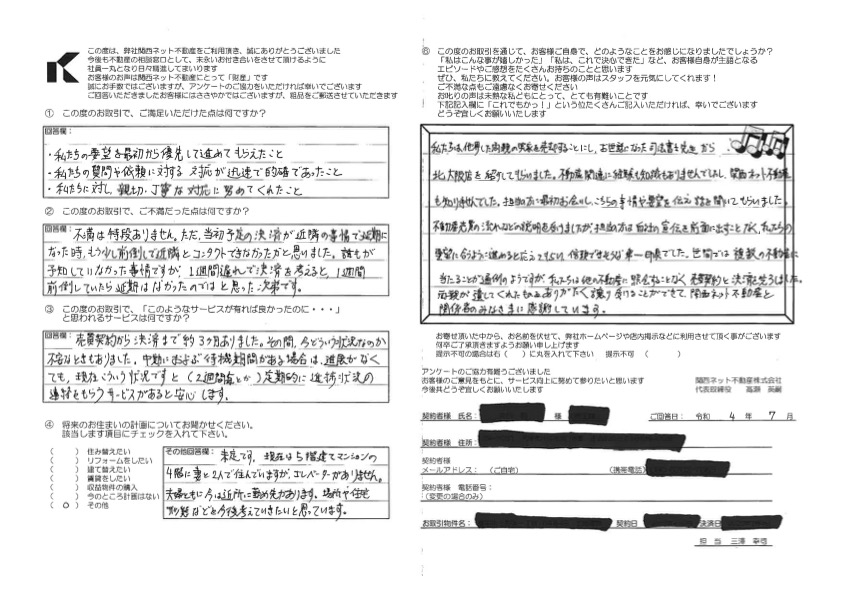 この度は、弊社関西ネット不動産をご利用頂き、誠にありがとうございました
今後も不動産の相談窓口として、末永いお付き合いをさせて頂けるように
社員一丸となり日々精進してまいります
お客様のお声は関西ネット不動産にとって「財産」です
誠にお手数ではございますが、アンケートのご協力をいただければ幸いでございます
ご回答いただきましたお客様にはささやかではございますが、粗品をご郵送させていただきます
① この度のお取引で、ご満足いただけた点は何ですか？
回答欄：
・私たちの要望を最初から優先して進めてもらえたこと
・私たちの質問や依頼に対する対応が迅速で的確であったこと
・私たちに対し、親切、丁寧な対応に努めてくれたこと
② この度のお取引で、ご不満だった点は何ですか？
回答欄：不満は特段ありません。ただ、当初予定の決済が近隣の事情で延期に
なった時、もう少し前倒しで近隣とコンタクトできなかったかと思いました。誰もが
予知していなかった事情ですが、1週間遅れで決済を考えると、1週間
前倒していたら延期はなかったのではと思った次第です。
③ この度のお取引で、「このようなサービスが有れば良かったのに・・・」
と思われるサービスは何ですか？
回答欄：売買契約から決済まで約3ヶ月ありました。その間、今どういう状況なのか
不安なときもありました。中動におよぶ待機期間がある場合は、進展がなく
ても、現在こういう状況ですと（2週間毎とか）定期的に進捗状況の
連絡をもらうサービスがあると安心します。
④ 将来のお住まいの計画についてお聞かせください。
該当します項目にチェックを入れて下さい。
（　）住み替えたい
（　）リフォームをしたい
（　）建て替えたい
（　）賃貸をしたい
（　）収益物件の購入
（　）今のところ計画はない
（ ○ ）その他
その他回答欄：未定です。現在は5階建てマンションの
4階に妻と2人で住んでいますが、エレベーターがありません。
夫婦ともに今は近所に勤め先があります。場所や住宅
形態などを今後考えていきたいと思っています。
⑥ この度のお取引を通じて、お客様ご自身で、どのようなことをお感じになりましたでしょうか？
「私はこんな事が嬉しかった」「私は、これで決心できた」など、お客様自身が主語となる
エピソードやご感想をたくさんお持ちのことと思います
ぜひ、私たちに教えてください。お客様の声はスタッフを元気にしてくれます！
ご不満な点もご遠慮なくお寄せください
お叱りの声は未熟な私どもにとって、とても有難いことです
下記記入欄に「これでもかっ！」という位たくさんご記入いただければ、幸いでございます
どうぞ宜しくお願いいたします
私たちは他界した両親の実家を売却することにし、お世話になった司法書士先生から
北大阪店を紹介してもらいました。不動産関連に経験も知識もありませんでしたし、関西ネット不動産
も知りませんでした。担当の方に最初お会いし、こちらの事情や要望を伝え話を聞いてもらいました。
不動産売買の流れなどの説明を承りましたが、担当の方は自社の宣伝を前面に出すことなく、私たちの
要望に合うように進めると応えてもらい、信頼できそうだ第一印象でした。世間では複数の不動産に
当たることが通例のようですが、私たちは他の不動産に照会することなく売買契約と決済を完了しました。
両親が遺してくれたものをありがたく譲り受けることができて、関西ネット不動産と
関係者のみなさまに感謝しています。
お寄せ頂いた中から、お名前を伏せて、弊社ホームページや店内掲示などに利用させて頂く事がございます
何卒ご了承頂きますようお願い申し上げます
提示不可の場合は右（　）に丸を入れて下さい　提示不可（　　）
アンケートのご協力有難うございました
お客様のご意見をもとに、サービス向上に努めて参りたいと思います
今後共どうぞ宜しくお願いいたします
関西ネット不動産株式会社
代表取締役
契約者様 氏名： 様 ご回答日： 令和 4 年 7 月
契約者様 住所：
契約者様
メールアドレス：（ご自宅） （携帯電話）
契約者様 電話番号：
（変更の場合のみ）
お取引物件名： 契約日 決済日
担 当 三澤 幸也